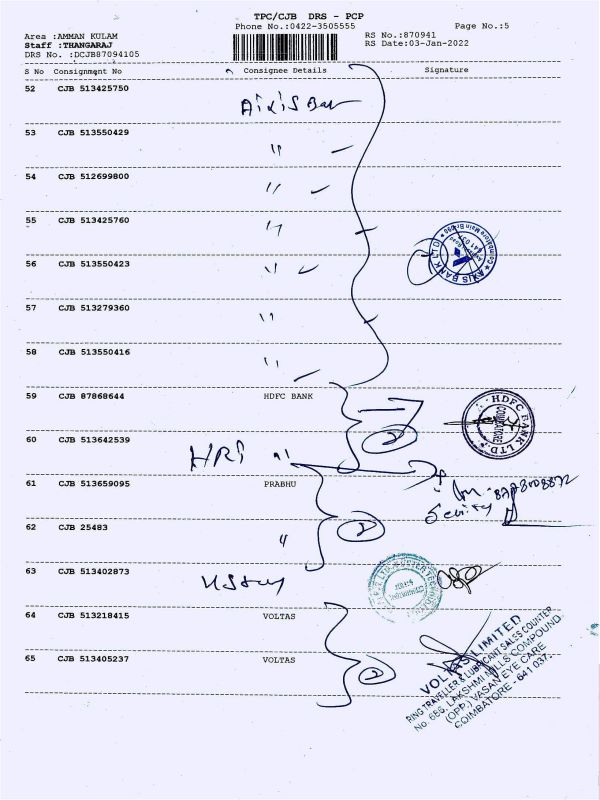 TPC/CJB DRS - PCP
Phone No.:0422-3505555
Page No.:5
Area :AMMAN KULAM
RS No.:870941
Staff :THANGARAJ
RS Date:03-Jan-2022
DRS No. :DCJB87094105
S No Consignment No Consignee Details Signature
52 CJB 513425750
53 CJB 513550429 "
54 CJB 512699800 "
55 CJB 513425760 "
56 CJB 513550423 "
57 CJB 513279360 "
58 CJB 513550416 "
59 CJB 87868644 HDFC BANK
60 CJB 513642539
61 CJB 513659095 PRABHU
62 CJB 25483 "
63 CJB 513402873
64 CJB 513218415 VOLTAS
65 CJB 513405237 VOLTAS
AXIS BANK LTD
HDFC BANK LTD.
COIMBATORE
VOLTAS LIMITED
RING TRAVELLER & LUBRICANT SALES COUNTER
No. 686, LAKSHMI MILLS COMPOUND
(OPP.) VASAN EYE CARE
COIMBATORE - 641 037.